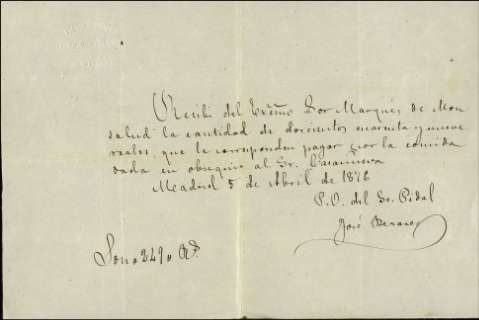 Recibí del Excmo Sor Marqués de Mon
salud la cantidad de doscientos cuarenta y nueve
reales, que le corresponden pagar por la comida
dada en obsequio al Sr. Casanueva
Madrid 5 de Abril de 1876
P.O. del Sr. Pidal
José
Son 249 Rs.